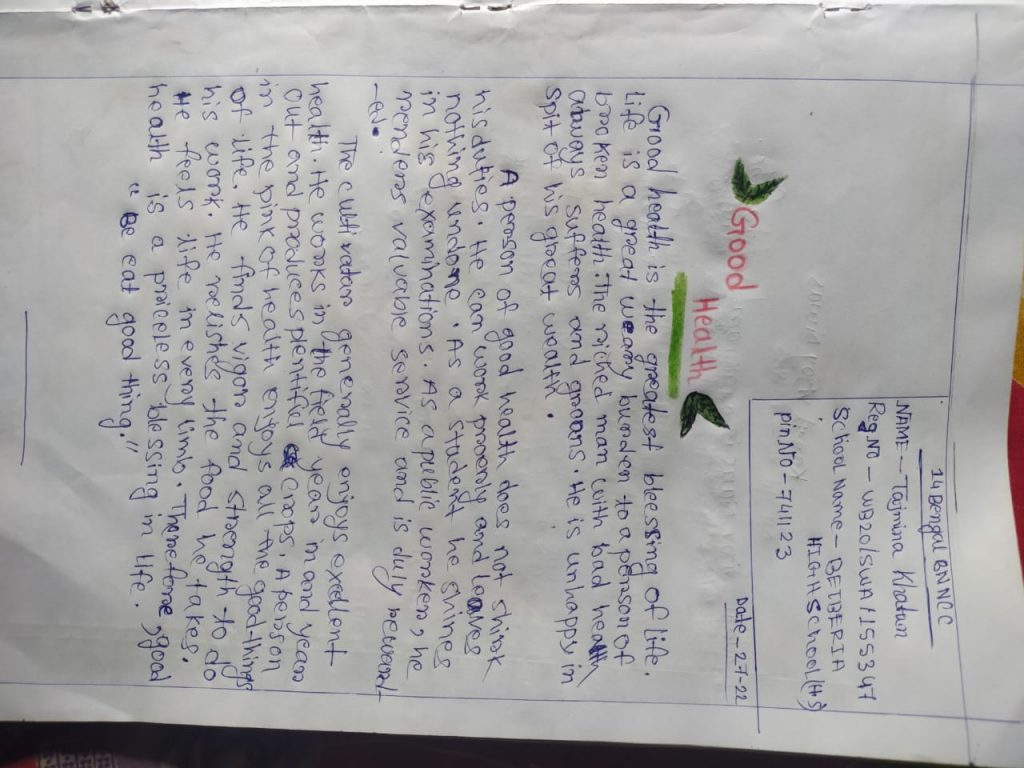 14 Bengal BN NCC
NAME - Tajmina Khatun
Reg.No - WB20/SWA/155347
School Name - BETBERIA
HIGH SCHOOL (H.S)
pin.No - 741123
Date - 2-7-22
Good
Health
Good health is the greatest bleessing of life.
life is a great weary burden to a person of
broken health. The riched man with bad health
always suffers and groans. He is unhappy in
spit of his great wealth.
A person of good health does not shirk
his duties. He can work properly and leaves
nothing undone. As a student he shines
in his examinations. As a public worker, he
renders valuable service and is duly reward
-ed.
The cultivator generally enjoys exellent
health. He works in the field year in and year
out and produces plentiful crops. A person
in the pink of health enjoys all the good-things
of life. He finds vigor and strength to do
his work. He relishes the food he takes.
He feels life in every limb. Therefore, good
health is a priceless blessing in life.
"Be eat good thing."